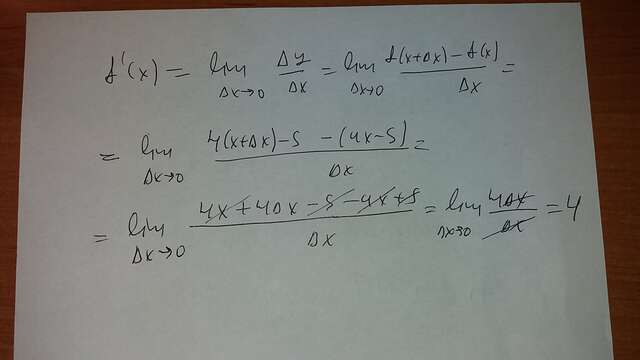 f'(x) = lim Δx→0 Δy/Δx = lim Δx→0 (f(x+Δx) - f(x))/Δx =
= lim Δx→0 (4(x+Δx) - 5 - (4x-5))/Δx =
= lim Δx→0 (4x + 4Δx - 5 - 4x + 5)/Δx = lim Δx→0 4Δx/Δx = 4